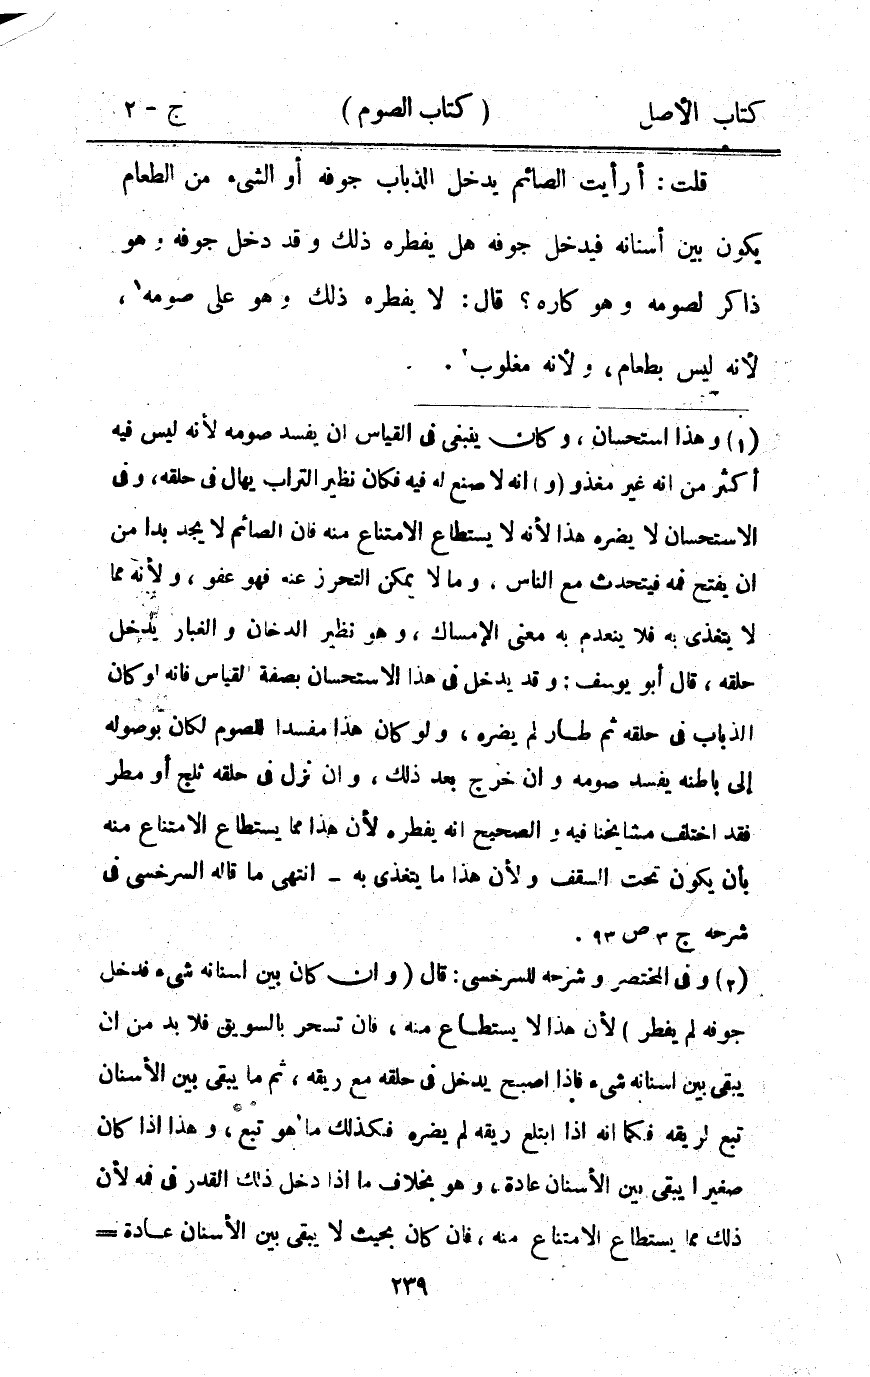 كتاب الأصل ( كتاب الصوم ) ج - ٢
قلت : أ رأيت الصائم يدخل الذباب جوفه أو الشىء من الطعام
يكون بين أسنانه فيدخل جوفه هل يفطره ذلك و قد دخل جوفه و هو
ذاكر لصومه و هو كاره ؟ قال : لا يفطره ذلك و هو على صومه١ ،
لأنه ليس بطعام ، و لأنه مغلوب٢ .
(١) و هذا استحسان ، و كان ينبغى فى القياس ان يفسد صومه لأنه ليس فيه
أكثر من انه غير مغذو (و) انه لا صنع له فيه فكان نظير التراب يهال فى حلقه ، و فى
الاستحسان لا يضره هذا لأنه لا يستطاع الامتناع منه فان الصائم لا يجد بدا من
ان يفتح فمه فيتحدث مع الناس ، و ما لا يمكن التحرز عنه فهو عفو ، و لأنه مما
لا يتغذى به فلا ينعدم به معنى الإمساك ، و هو نظير الدخان و الغبار يدخل
حلقه ، قال أبو يوسف : و قد يدخل فى هذا الاستحسان بصفة القياس فانه لو كان
الذباب فى حلقه ثم طار لم يضره ، و لو كان هذا مفسدا للصوم لكان بوصوله
إلى باطنه يفسد صومه و ان خرج بعد ذلك ، و ان نزل فى حلقه ثلج أو مطر
فقد اختلف مشايخنا فيه و الصحيح انه يفطره لأن هذا مما يستطاع الامتناع منه
بأن يكون تحت السقف و لأن هذا ما يتغذى به - انتهى ما قاله السرخسى فى
شرحه ج ٣ ص ٩٣ .
(٢) و فى المختصر و شرحه للسرخسى : قال ( و ان كان بين اسنانه شىء فدخل
جوفه لم يفطر ) لأن هذا لا يستطاع منه ، فان تسحر بالسويق فلا بد من ان
يبقى بين اسنانه شىء فاذا اصبح يدخل فى حلقه مع ريقه ، ثم ما يبقى بين الأسنان
تبع لريقه فكما انه اذا ابتلع ريقه لم يضره فكذلك ما هو تبع ، و هذا اذا كان
صغيرا يبقى بين الأسنان عادة ، و هو بخلاف ما اذا دخل ذلك القدر فى فمه لأن
ذلك مما يستطاع الامتناع منه ، فان كان بحيث لا يبقى بين الأسنان عادة =
٢٣٩